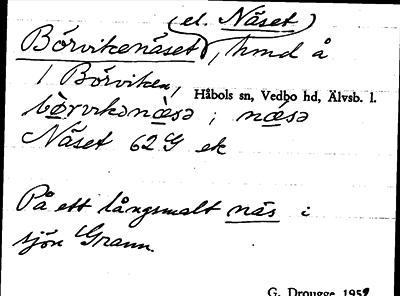 (el. Näset)
Börvikenäset, hmd å
1 Börviken,
Håbols sn, Vedbo hd, Älvsb. l.
bö̀rvikənæ̀sə ; næsə
Näset 62G ek
På ett långsmalt näs i
sjön Grann
G. Drougge 1959